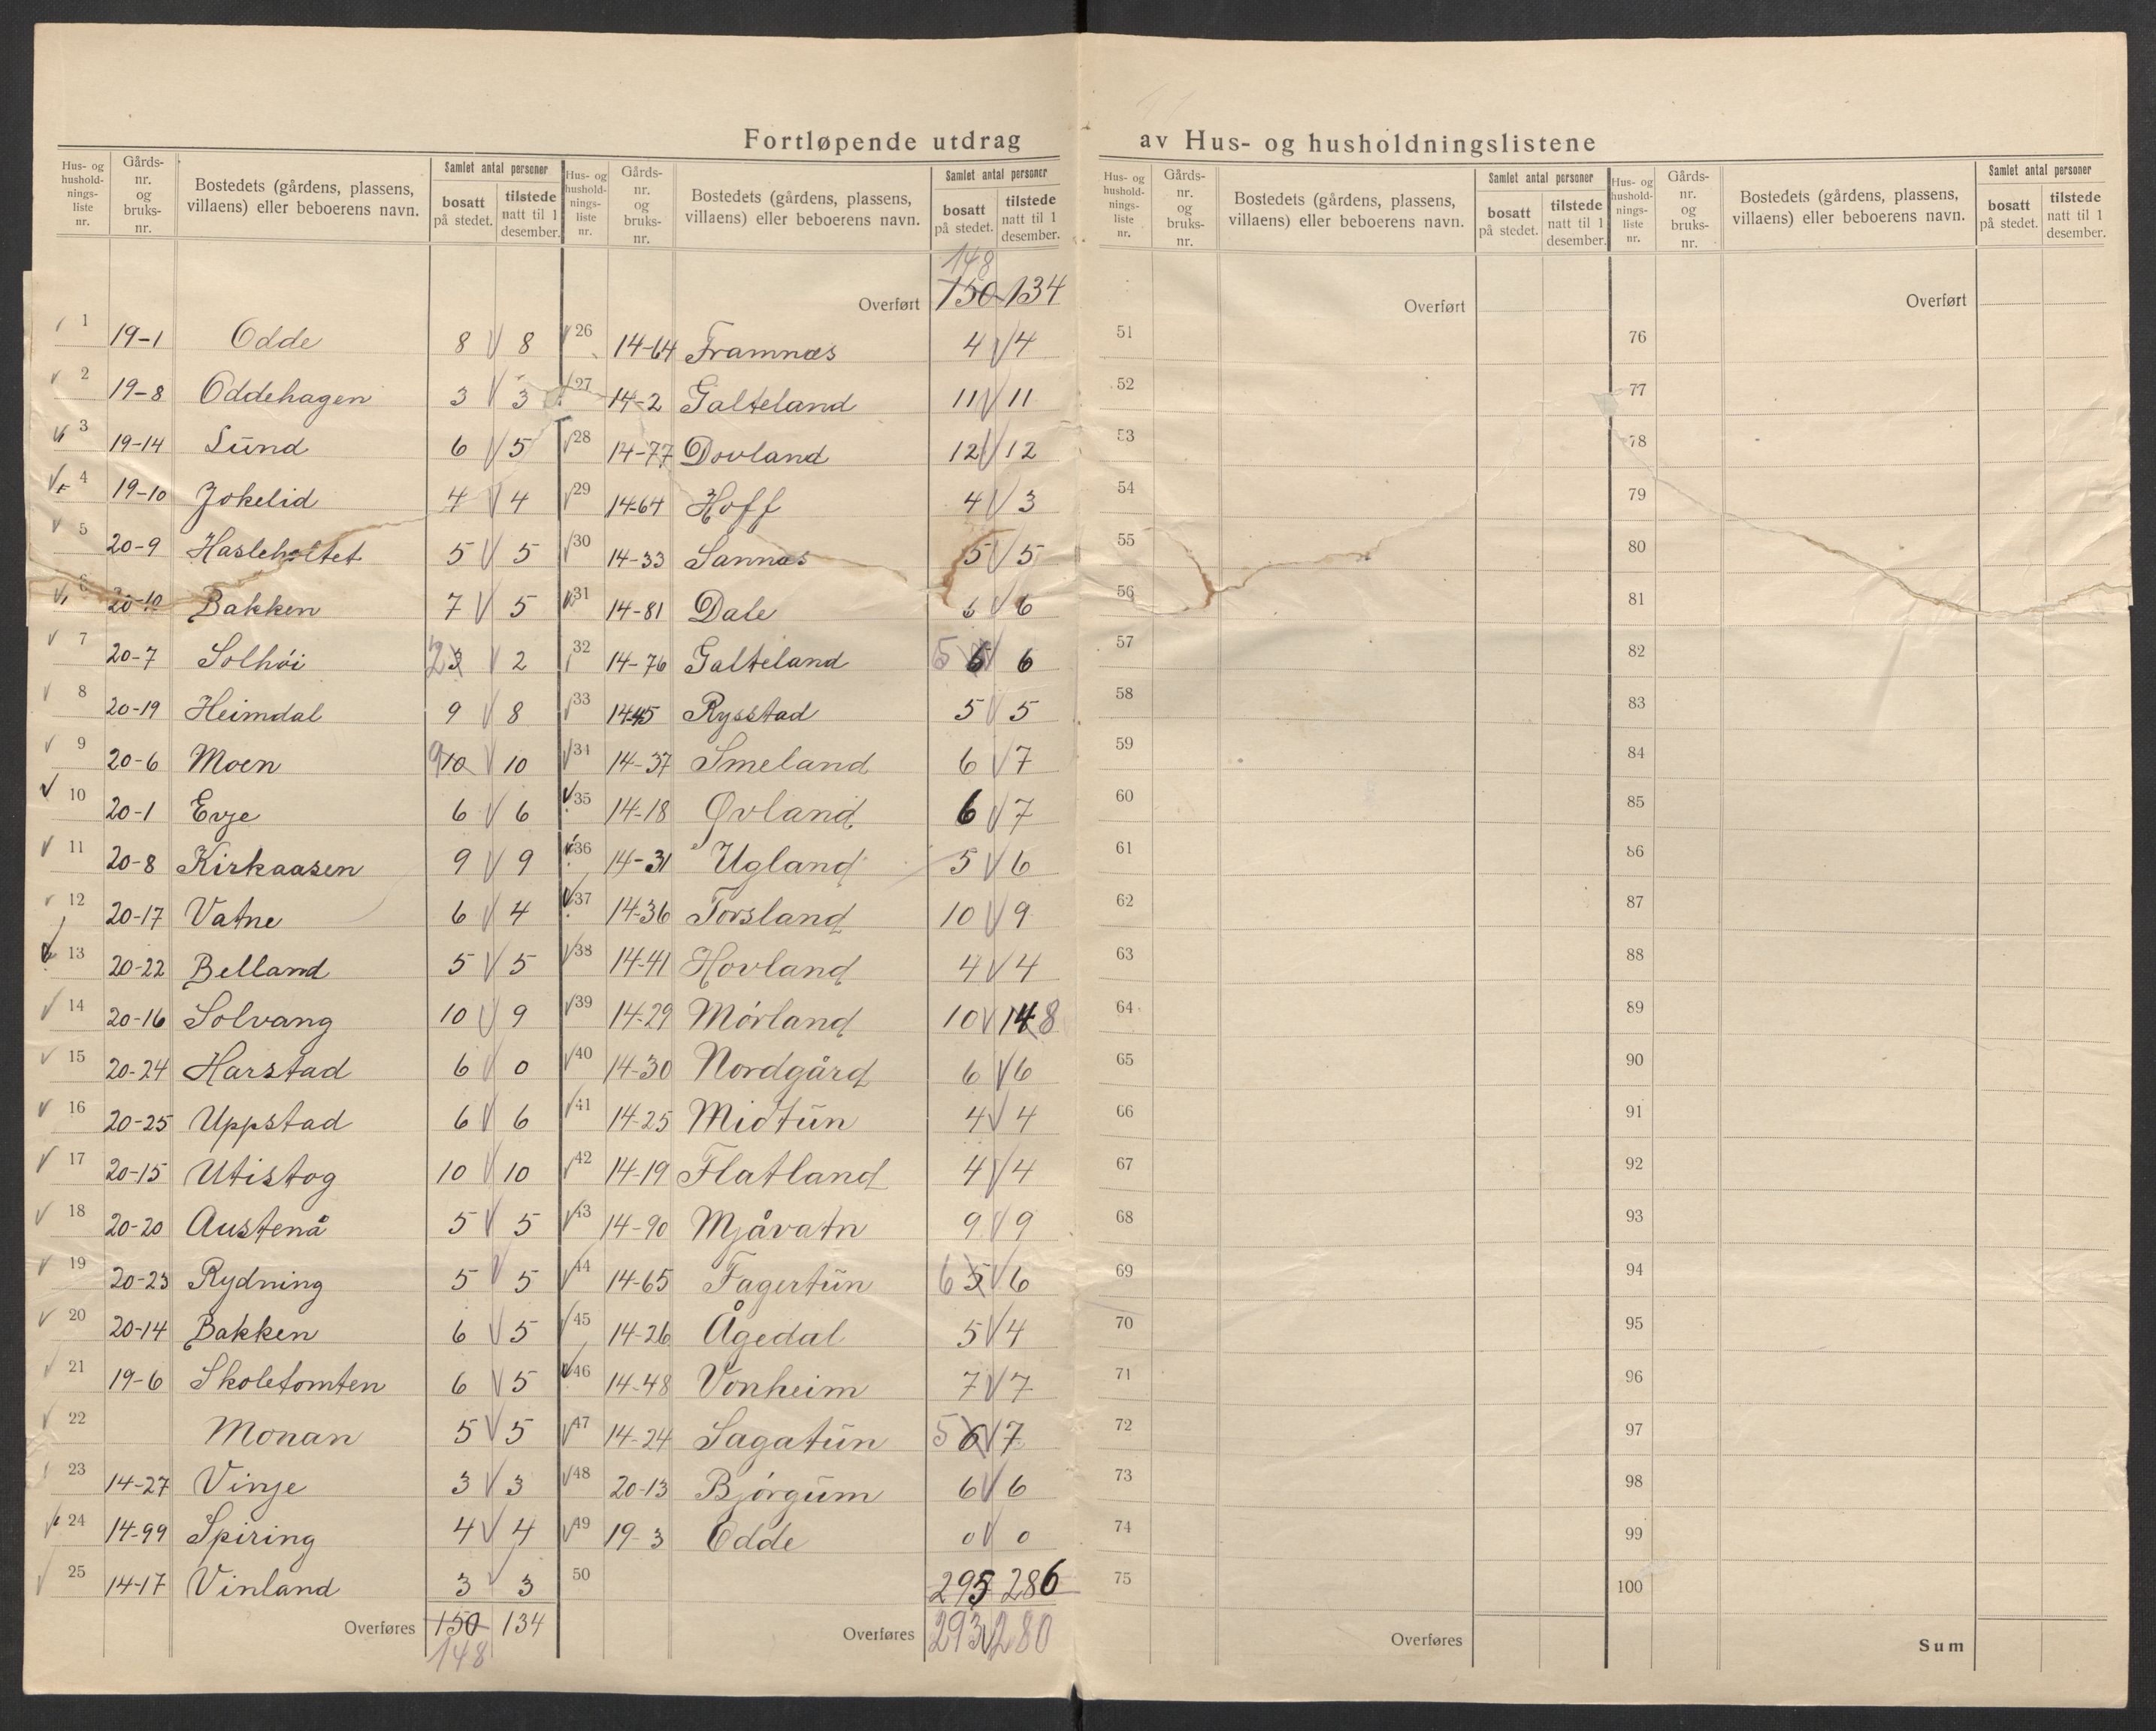 Fortløpende utdrag av Hus- og husholdningslistene
Hus- og husholdningsliste nr. Gårdsnr. og bruksnr. Bostedets (gårdens, plassens, villaens) eller beboerens navn. Samlet antal personer bosatt på stedet. tilstede natt til 1 desember.
1 19-1 Odde 8 8
2 19-8 Oddehagen 3 3
3 19-14 Lund 6 5
4 19-10 Jokelid 4 4
5 20-9 Hasleholtet 5 5
6 20-10 Bakken 7 5
7 20-7 Solhøi 2 3 2
8 20-19 Heimdal 9 8
9 20-6 Moen 9 10 10
10 20-1 Evje 6 6
11 20-8 Kirkaasen 9 9
12 20-17 Vatne 6 4
13 20-22 Belland 5 5
14 20-16 Solvang 10 9
15 20-24 Harstad 6 0
16 20-25 Uppstad 6 6
17 20-15 Utistog 10 10
18 20-20 Austenå 5 5
19 20-23 Rydning 5 5
20 20-14 Bakken 6 5
21 19-6 Skoletomten 6 5
22 Monan 5 5
23 14-27 Vinje 3 3
24 14-99 Spiring 4 4
25 14-17 Vinland 3 3
Overføres 150 134
148
Hus- og husholdningsliste nr. Gårdsnr. og bruksnr. Bostedets (gårdens, plassens, villaens) eller beboerens navn. Samlet antal personer bosatt på stedet. tilstede natt til 1 desember.
148
Overført 150 134
26 14-64 Framnæs 4 4
27 14-2 Galteland 11 11
28 14-77 Dovland 12 12
29 14-64 Hoff 4 3
30 14-33 Sannæs 5 5
31 14-81 Dale 6 6
32 14-76 Galteland 5 6 6
33 14-45 Rysstad 5 5
34 14-37 Smeland 6 7
35 14-18 Øvland 6 7
36 14-31 Ugland 5 6
37 14-36 Torsland 10 9
38 14-41 Hovland 4 4
39 14-29 Mørland 10 14 8
40 14-30 Nordgård 6 6
41 14-25 Midtun 4 4
42 14-19 Flatland 4 4
43 14-90 Mjåvatn 9 9
44 14-65 Fagertun 6 5 6
45 14-26 Ågedal 5 4
46 14-48 Vonheim 7 7
47 14-24 Sagatun 5 6 7
48 20-13 Bjørgum 6 6
49 19-3 Odde 0 0
50 295 286
Overføres 293 280
Hus- og husholdningsliste nr. Gårdsnr. og bruksnr. Bostedets (gårdens, plassens, villaens) eller beboerens navn. Samlet antal personer bosatt på stedet. tilstede natt til 1 desember.
Overført
51
52
53
54
55
56
57
58
59
60
61
62
63
64
65
66
67
68
69
70
71
72
73
74
75
Overføres
Hus- og husholdningsliste nr. Gårdsnr. og bruksnr. Bostedets (gårdens, plassens, villaens) eller beboerens navn. Samlet antal personer bosatt på stedet. tilstede natt til 1 desember.
Overført
76
77
78
79
80
81
82
83
84
85
86
87
88
89
90
91
92
93
94
95
96
97
98
99
100
Sum